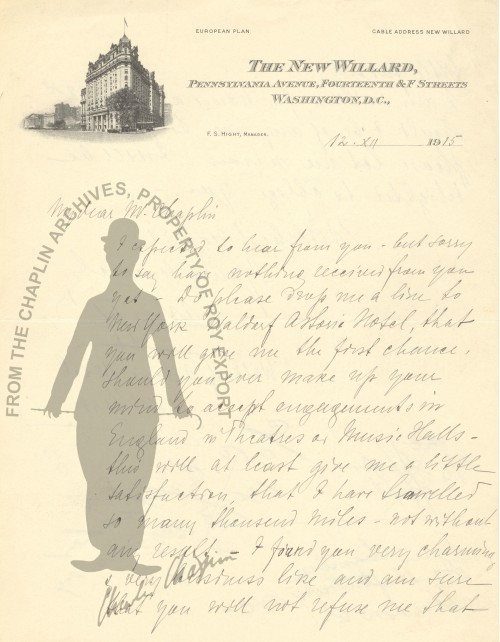 EUROPEAN PLAN
CABLE ADDRESS NEW WILLARD
THE NEW WILLARD,
PENNSYLVANIA AVENUE, FOURTEENTH & F STREETS
WASHINGTON, D.C.,
F. S. HIGHT, MANAGER.
12 - XII 1915
My dear Mr Chaplin
I expected to hear from you - but sorry
to say have nothing received from you
yet - Do please drop me a line to
New York Waldorf Astoria Hotel, that
you will give me the first chance.
Should you ever make up your
mind to accept engagements in
England in Theatres or Music Halls -
this will at least give me a little
satisfaction, that I have travelled
so many thousend miles - not without
any result - I found you very charming
& very business like and am sure
that you will not refuse me that
FROM THE CHAPLIN ARCHIVES, PROPERTY OF ROY EXPORT
Charlie Chaplin